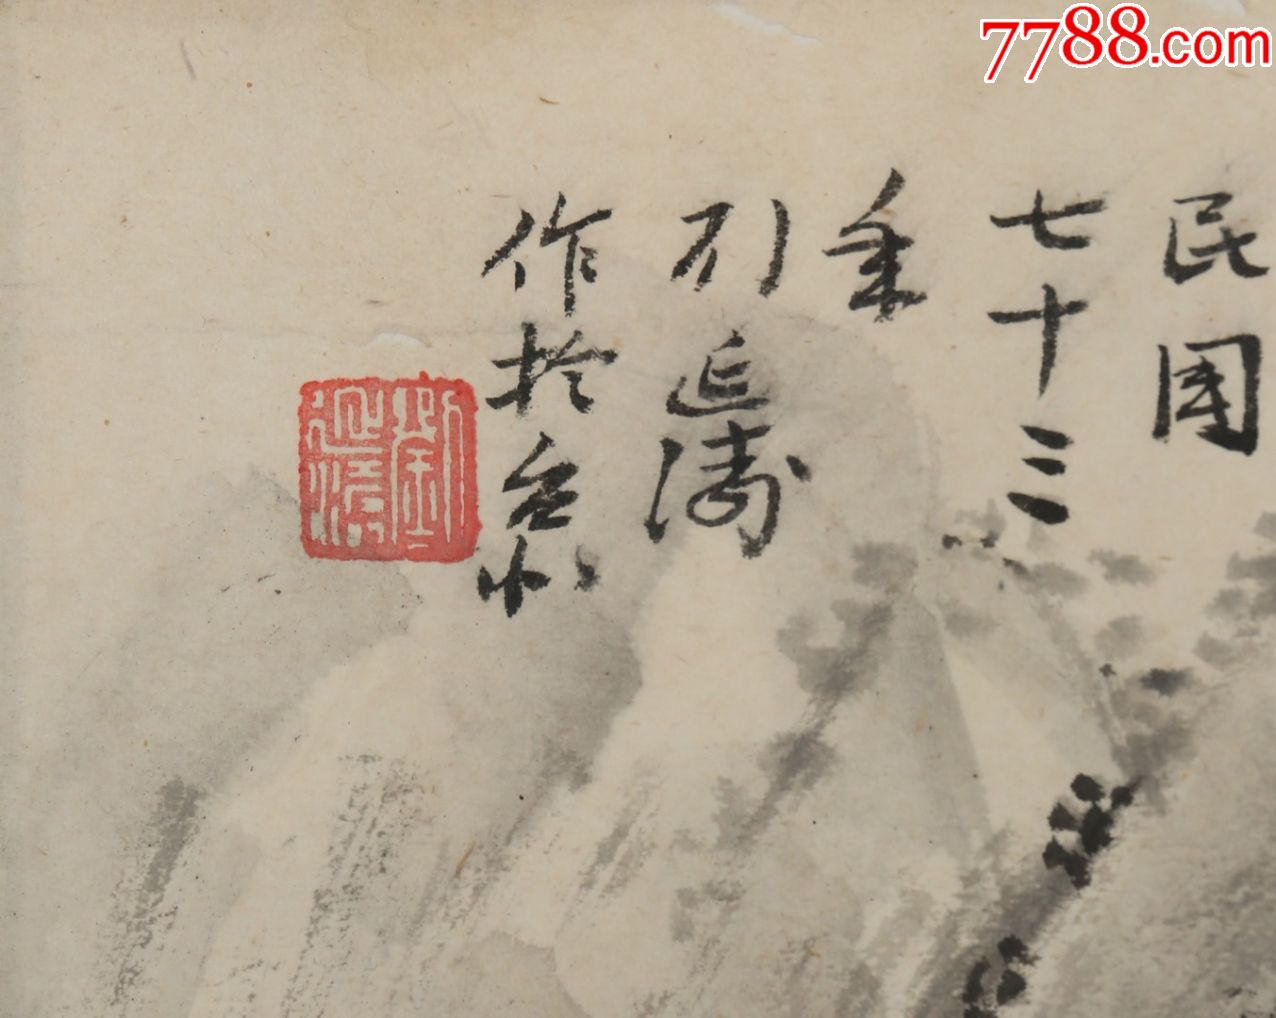 7788.com
民国
七十三
年
刘延涛
作於台北
劉延濤